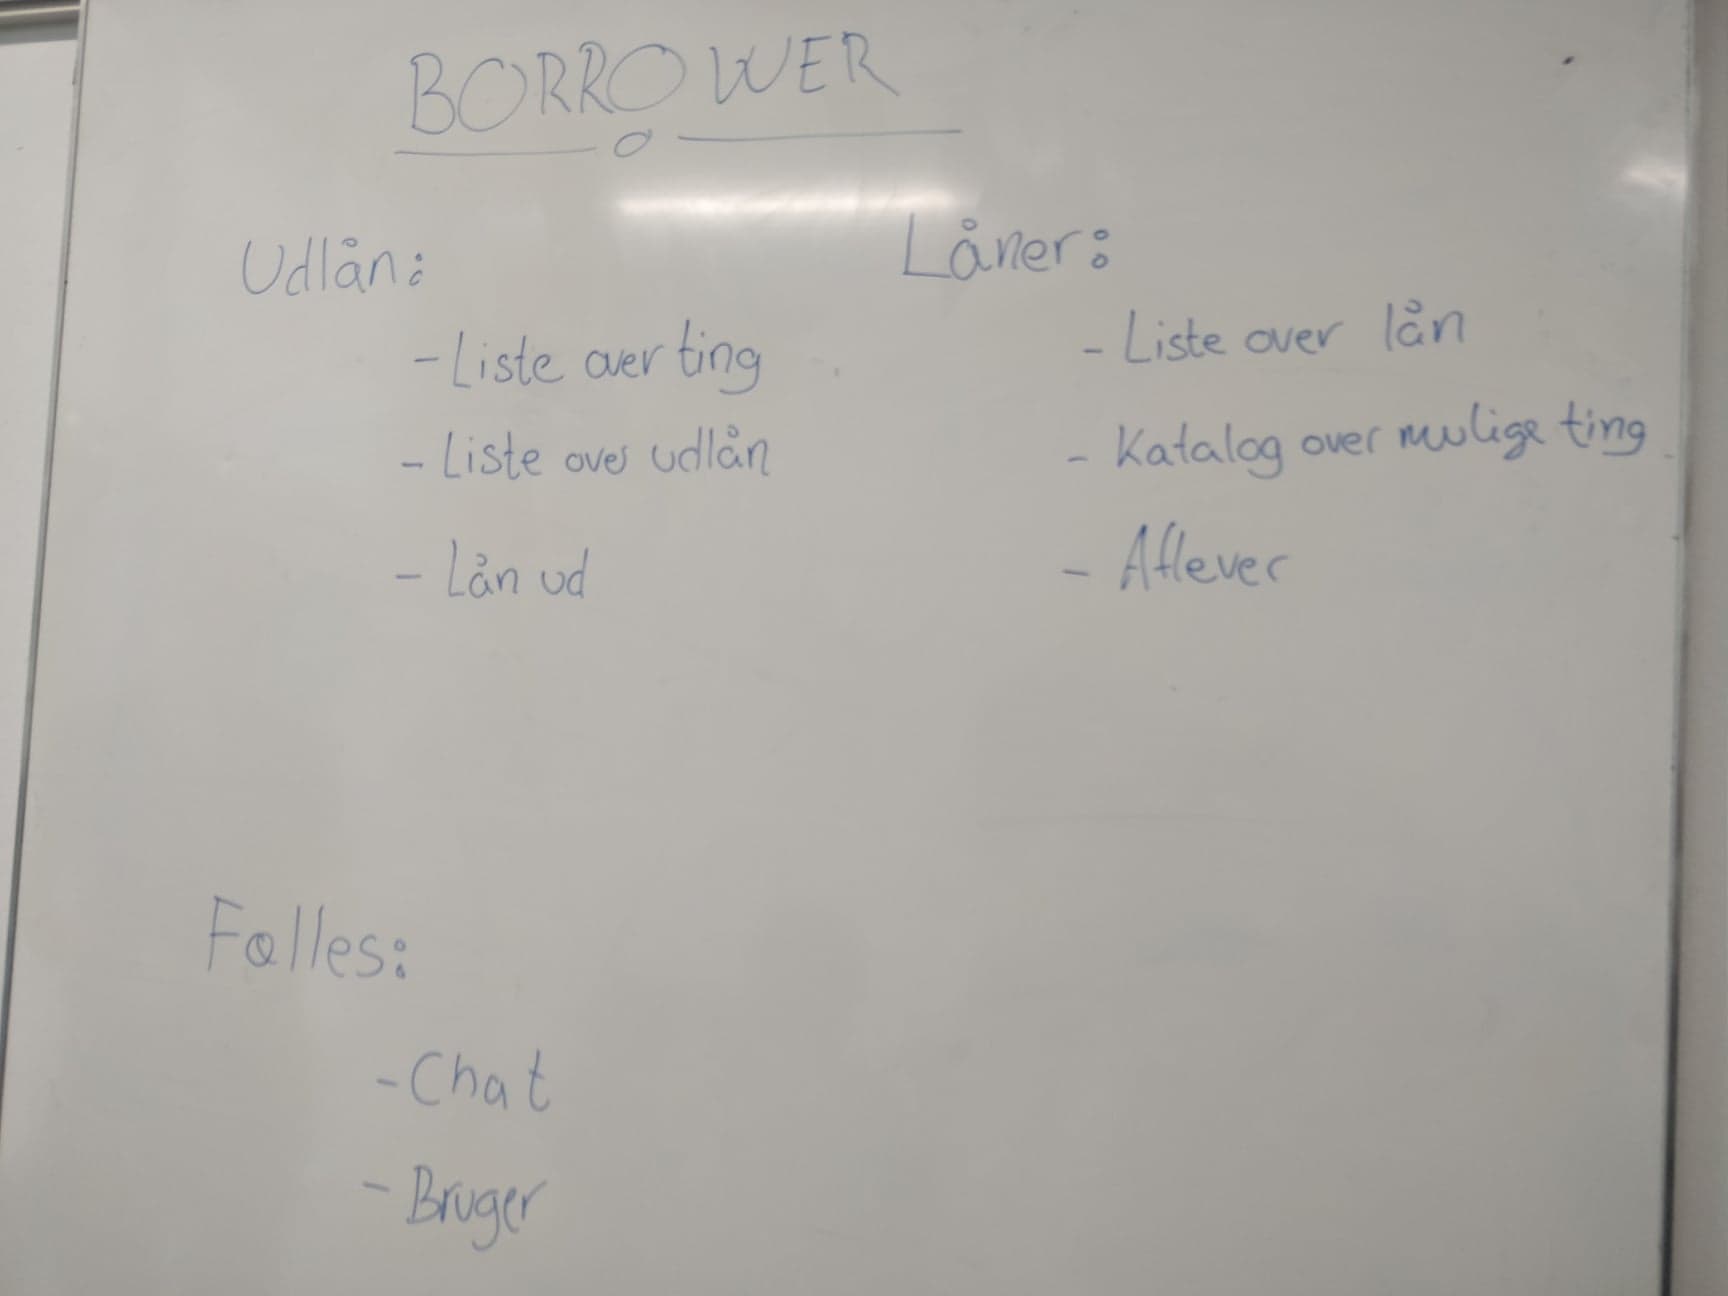 BORROWER
Udlån:
- Liste over ting
- Liste over udlån
- Lån ud
Låner:
- Liste over lån
- Katalog over mulige ting
- Aflever
Fælles:
- Chat
- Bruger